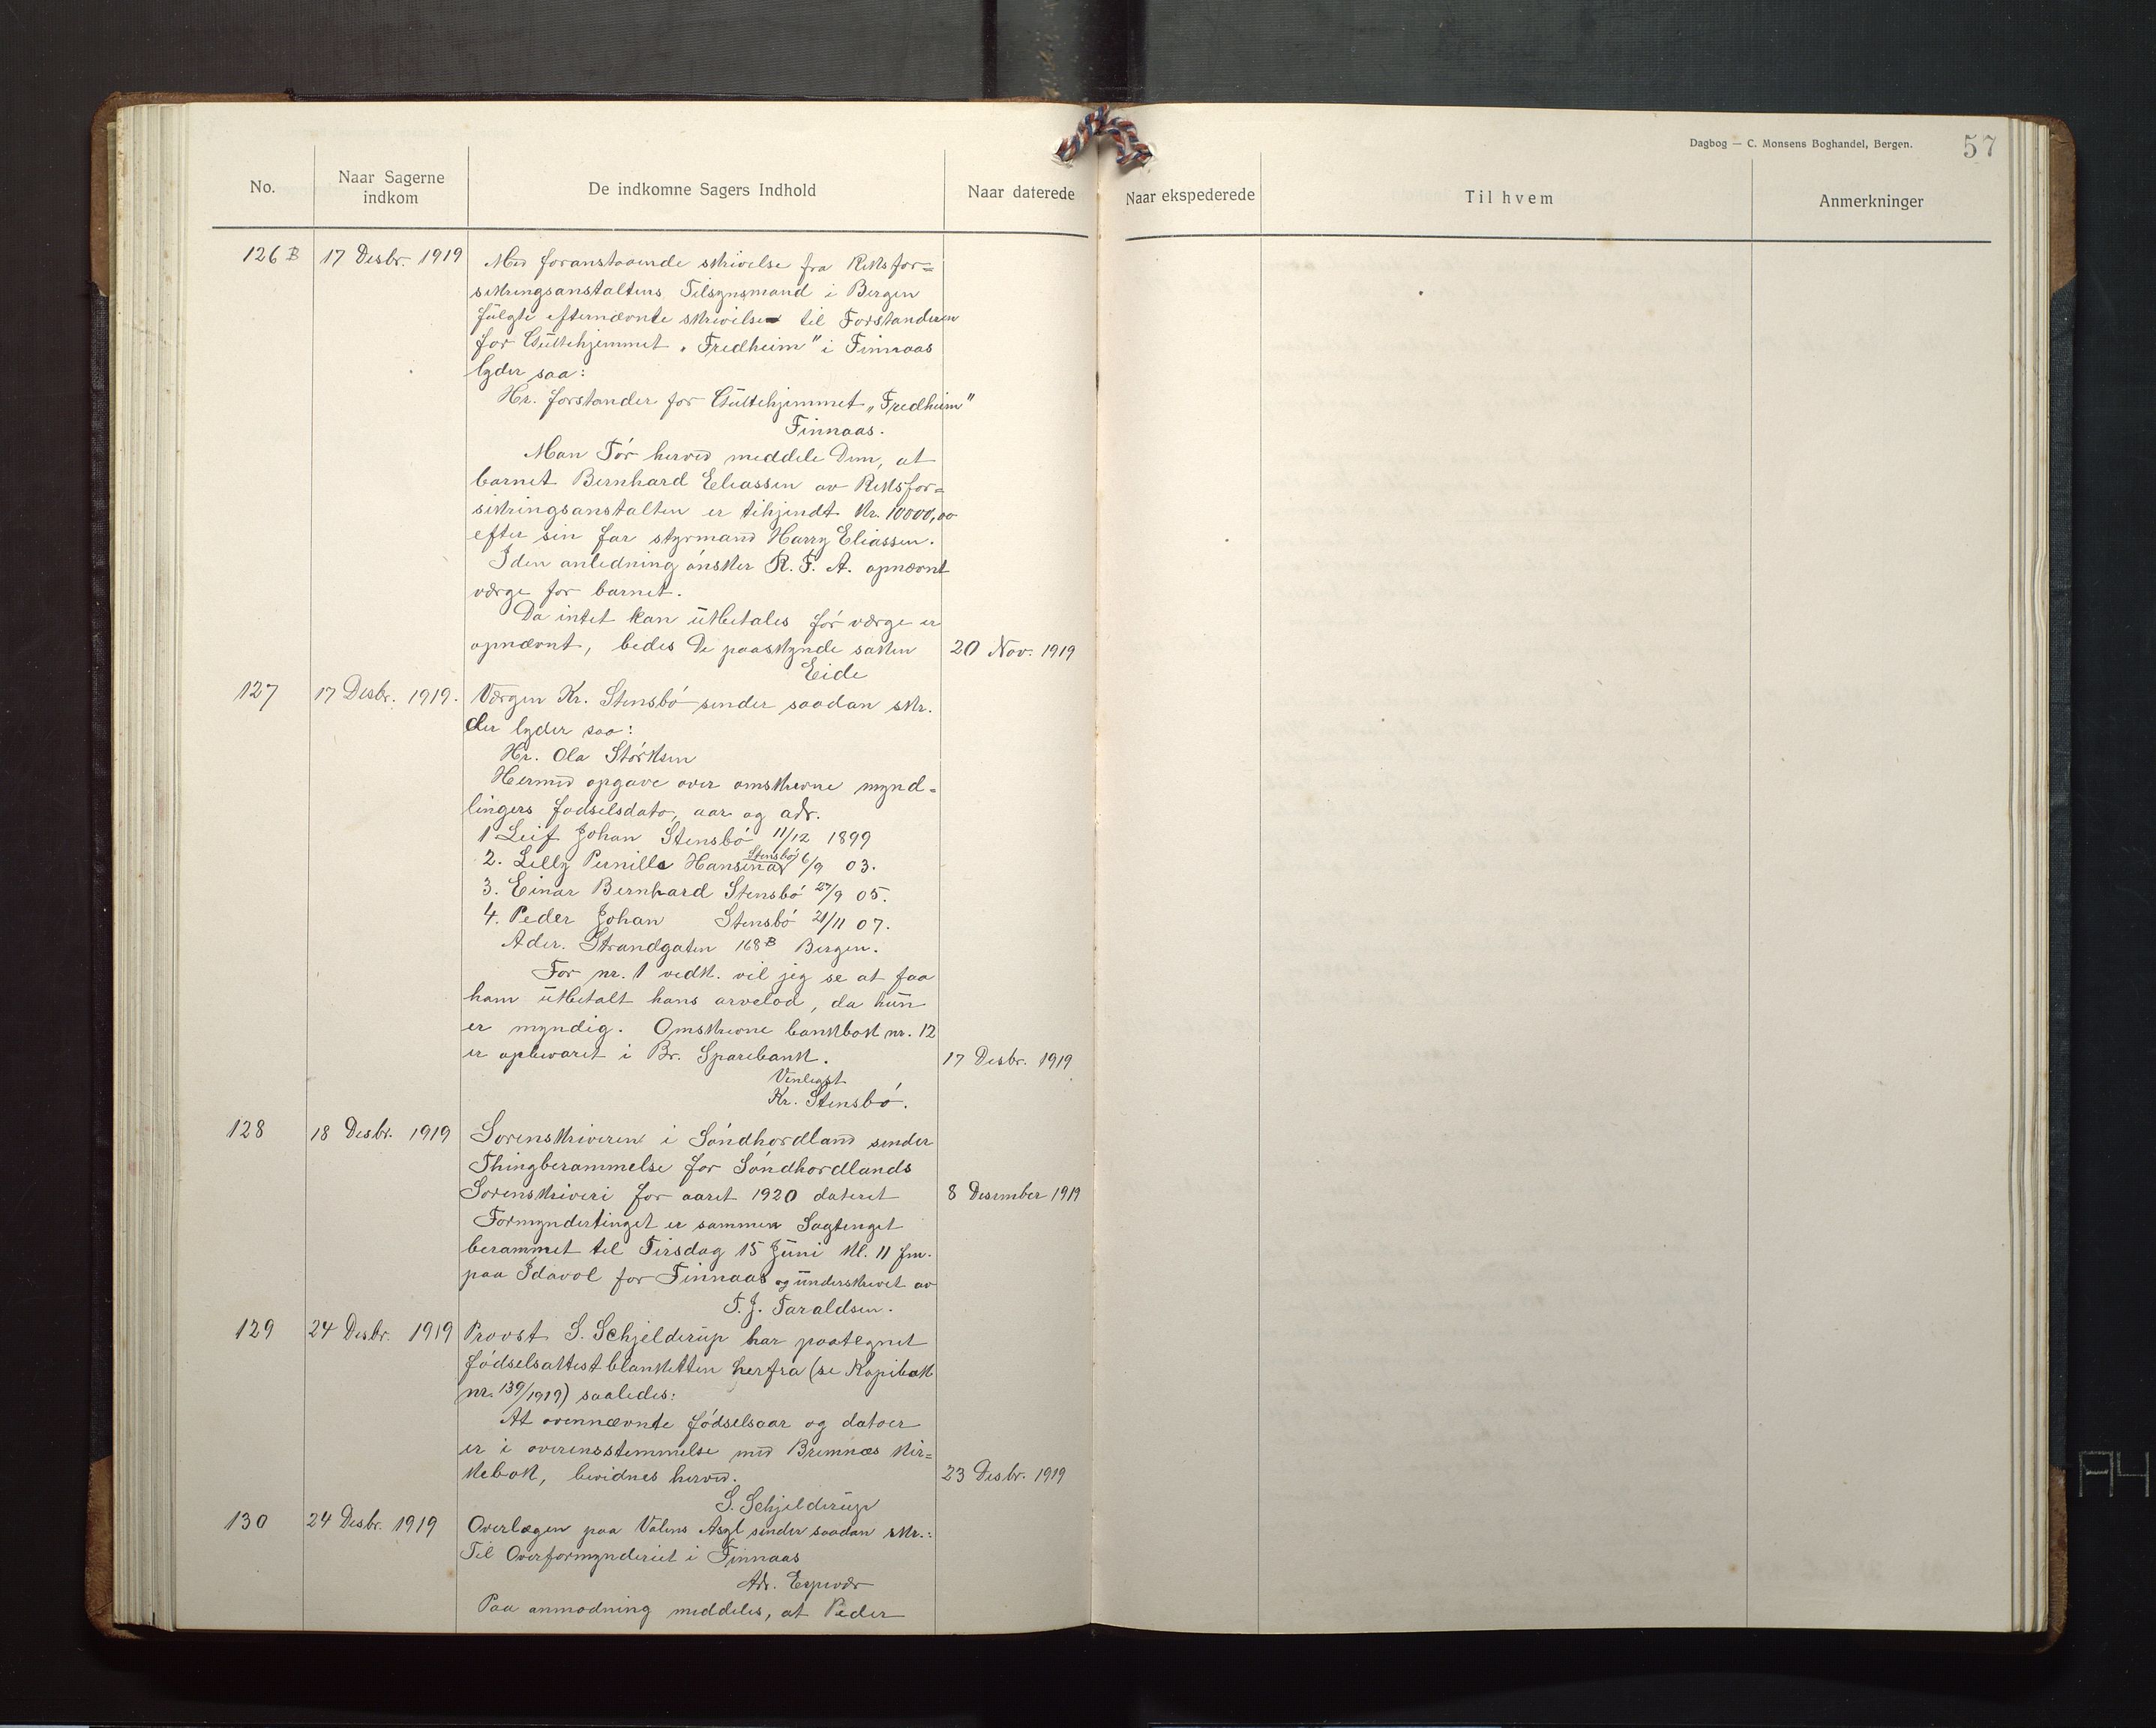 Dagbog — C. Monsens Boghandel, Bergen.
57
No.
Naar Sagerne indkom
De indkomne Sagers Indhold
Naar daterede
Naar ekspederede
Til hvem
Anmerkninger
126 B 17 Desbr. 1919 Med foranstaaende skrivelse fra Riksfor=
sikringsanstaltens Tilsynsmand i Bergen
fülgte efternævnte skrivelse til Forstanderen
for Guttehjemmet „Fredheim" i Finnaas
lyder saa:
Hr. forstander for Guttehjemmet „Fredheim"
Finnaas.
Man Tør herved meddele Dem, at
barnet Bernhard Eliassen av Riksfor=
sikringsanstalten er tilkjendt Kr. 10000,00
efter sin far styrmand Harry Eliassen.
I den anledning ønsker R. F. A. opnævnt
værge for barnet.
Da intet kan ütbetales før værge er
opnævnt, bedes De paaskynde saken 20 Nov. 1919
Eide
127 17 Desbr. 1919. Værgen Kr. Stensbø sender saadan skr.
der lyder saa:
Hr. Ola Størksen
Hermed opgave over omskrevne mynd-
lingers fødselsdato, aar og adr.
1 Leif Johan Stensbø 11/12 1899
2. Lilly Pernille Hansina Stensbø 6/9 03.
3. Einar Bernhard Stensbø 27/9 05.
4. Peder Johan Stensbø 21/11 07.
Adr. Strandgaten 168B Bergen.
For nr. 1 vedk. vil jeg se at faa
ham ütbetalt hans arvelod, da hün
er myndig. Omskrevne bankbok nr. 12
er opbevaret i Br. Sparebank. 17 Desbr. 1919
Venligst
Kr. Stensbø.
128 18 Desbr. 1919 Sorenskriveren i Søndhordland sender
Thingberammelse for Søndhordlands
Sorenskriveri for aaret 1920 dateret 8 Desember 1919
Formyndertinget er sammen Sagtenget
berammet til Tirsdag 15 Jüni kl. 11 fm.
paa Idavol for Finnaas og ünderskrevet av
T. J. Taraldsen.
129 24 Desbr. 1919 Provst S. Schjelderüp har paategnet
fødselsattestblanketten herfra (se Kopibok
nr. 139/1919) saaledes:
At ovennævnte fødselsaar og datoer
er i overensstemmelse med Bremnæs kir=
kebok, bevidnes herved. 23 Desbr. 1919
S. Schjelderüp
130 24 Desbr. 1919 Overlægen paa Valens Asyl sender saadan skr.:
Til Overformynderiet i Finnaas
Adr. Espevær
Paa anmodning meddeles, at Peder